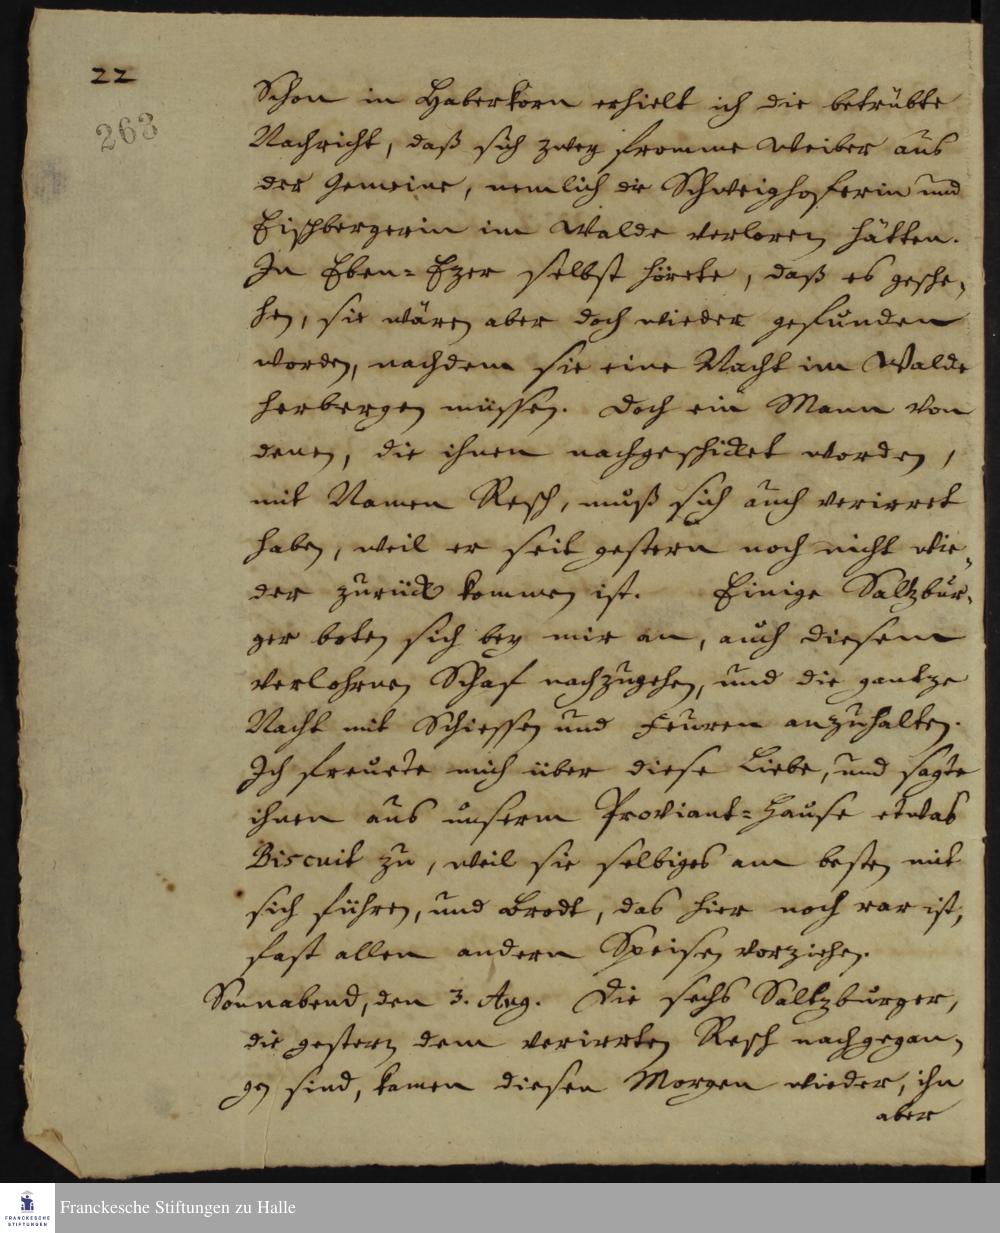 22
263
Schon in Haberkorn erhielt ich die betrübte
Nachricht, daß sich zwey fromme Weiber aus
der Gemeine, nemlich die Schweighoferin und
Eischbergerin im Walde verloren hätten.
In Eben-Ezer selbst hörete, daß es gesche-
hen, sie wären aber doch wieder gefunden
worden, nachdem sie eine Nacht im Walde
herbergen müssen. Doch ein Mann von
denen, die ihnen nachgeschicket worden,
mit Namen Resch, muß sich auch verirret
haben, weil er seit gestern noch nicht wie-
der zurück kommen ist. Einige Saltzbur-
ger boten sich bey mir an, auch diesem
verlohrnen Schaf nachzugehen, und die gantze
Nacht mit Schiessen und Feuren anzuhalten.
Ich freuete mich über diese Liebe, und sagte
ihnen aus unserm Proviant-Hause etwas
Biscuit zu, weil sie selbiges am besten mit
sich führen, und Brodt, das hier noch rar ist,
fast allen andern Speisen vorziehen.
Sonnabend, den 3. Aug. Die sechs Saltzburger,
die gestern dem verirrten Resch nachgegan-
gen sind, kamen diesen Morgen wieder, ihn
aber
FRANCKESCHE
STIFTUNGEN
Franckesche Stiftungen zu Halle